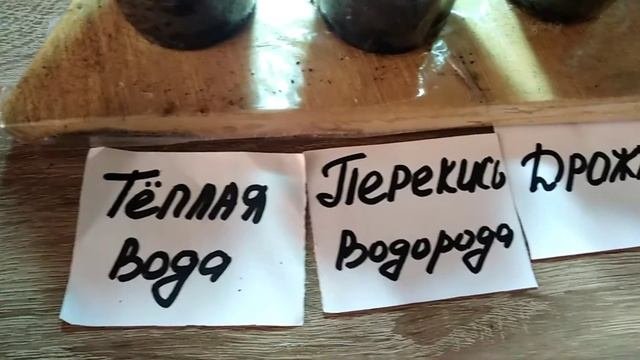 Тёплая
Вода
Перекись
Водорода